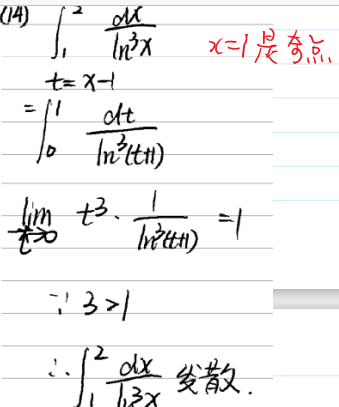 (14) ∫₁² dx/ln³x x=1是奇点
t=x-1
=∫₀¹ dt/ln³(t+1)
lim t→0 t³·1/ln³(t+1) =1
∵3>1
∴∫₁² dx/ln³x 发散.